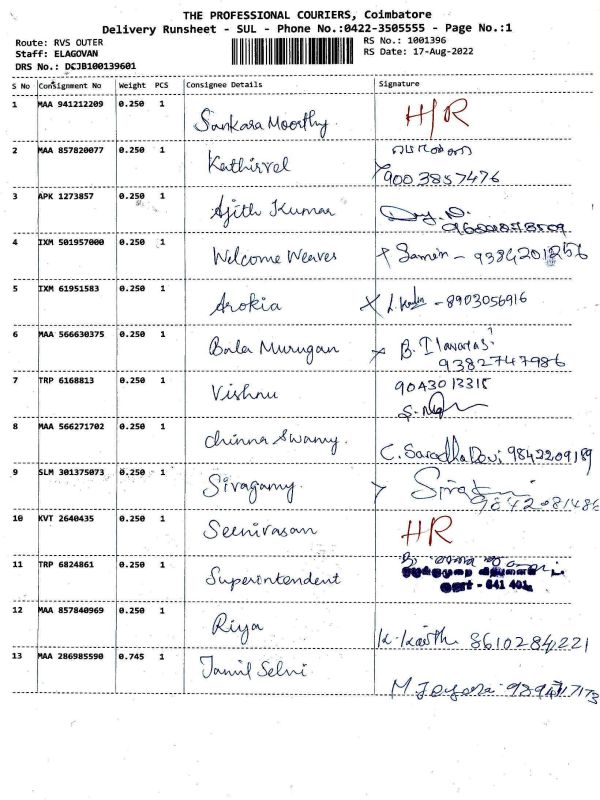 THE PROFESSIONAL COURIERS, Coimbatore
Delivery Runsheet - SUL - Phone No.:0422-3505555 - Page No.:1
Route: RVS OUTER
RS No.: 1001396
Staff: ELAGOVAN
RS Date: 17-Aug-2022
DRS No.: DCJB100139601
S No Consignment No Weight PCS Consignee Details Signature
1 MAA 941212209 0.250 1 Sankara Moorthy H/R
2 MAA 857820077 0.250 1 Kathirvel
9003857476
3 APK 1273857 0.250 1 Ajith Kumar
4 IXM 501957000 0.250 1 Welcome Weaves
5 IXM 61951583 0.250 1 Arokia - 8903056916
6 MAA 566630375 0.250 1 Bala Murugan B.
9382747986
7 TRP 6168813 0.250 1 Vishnu 9043013315
8 MAA 566271702 0.250 1 chinna Swamy. C. Sarodha Devi 9842209189
9 SLM 301375073 0.250 1 Sivagamy.
9842081486
10 KVT 2640435 0.250 1 Seenivasan HR
11 TRP 6824861 0.250 1 Superintendent
641 401.
12 MAA 857840969 0.250 1 Riya K. 8610284221
13 MAA 286985590 0.745 1 Tamil Selvi M